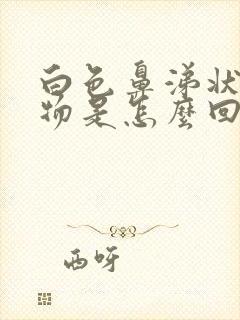 白色鼻涕状
物是怎麼回
西呀